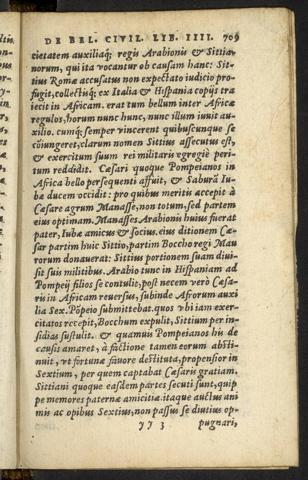 DE BEL. CIVIL. LIB. IIII. 709
cietatem auxiliaq́; regis Arabionis & Sittia-
norum, qui ita vocantur ob causam hanc: Sit-
tius Romæ accusatus non expectato iudicio pro-
fugit, collectisq́; ex Italia & Hispania copijs tra
iecit in Africam. erat tum bellum inter Africæ
regulos, horum nunc hunc, nunc illum iuuit au-
xilio. cumq́; semper vincerent quibuscunque se
cõiungeret, clarum nomen Sittius assecutus est,
& exercitum suum rei militaris egregiè peri-
tum reddidit. Cæsari quoque Pompeianos in
Africa bello persequenti affuit, & Saburã Iu-
bæ ducem occidit: pro quibus meritis accepit à
Cæsare agrum Manassæ, non totum, sed partem
eius optimam. Manasses Arabionis huius fuerat
pater, Iubæ amicus & socius. eius ditionem Cæ-
sar partim huic Sittio, partim Boccho regi Mau
rorum donauerat: Sittius portionem suam diui-
sit suis militibus. Arabio tunc in Hispaniam ad
Pompeij filios se contulit. post necem verò Cæsa-
ris in Africam reuersus, subinde Afrorum auxi
lia Sex. Põpeio submittebat. quos vbi iam exer-
citatos recepit, Bocchum expulit, Sittium per in-
sidias sustulit. & quamuis Pompeianos his de
causis amaret, à factione tamen eorum absti-
nuit, vt fortunæ fauore destituta, propensior in
Sextium, per quem captabat Cæsaris gratiam.
Sittiani quoque easdem partes secuti sunt, quip
pe memores paternæ amicitiæ. itaque auctus ani
mis ac opibus Sextius, non passus se diutius op-
yy 3 pugnari,